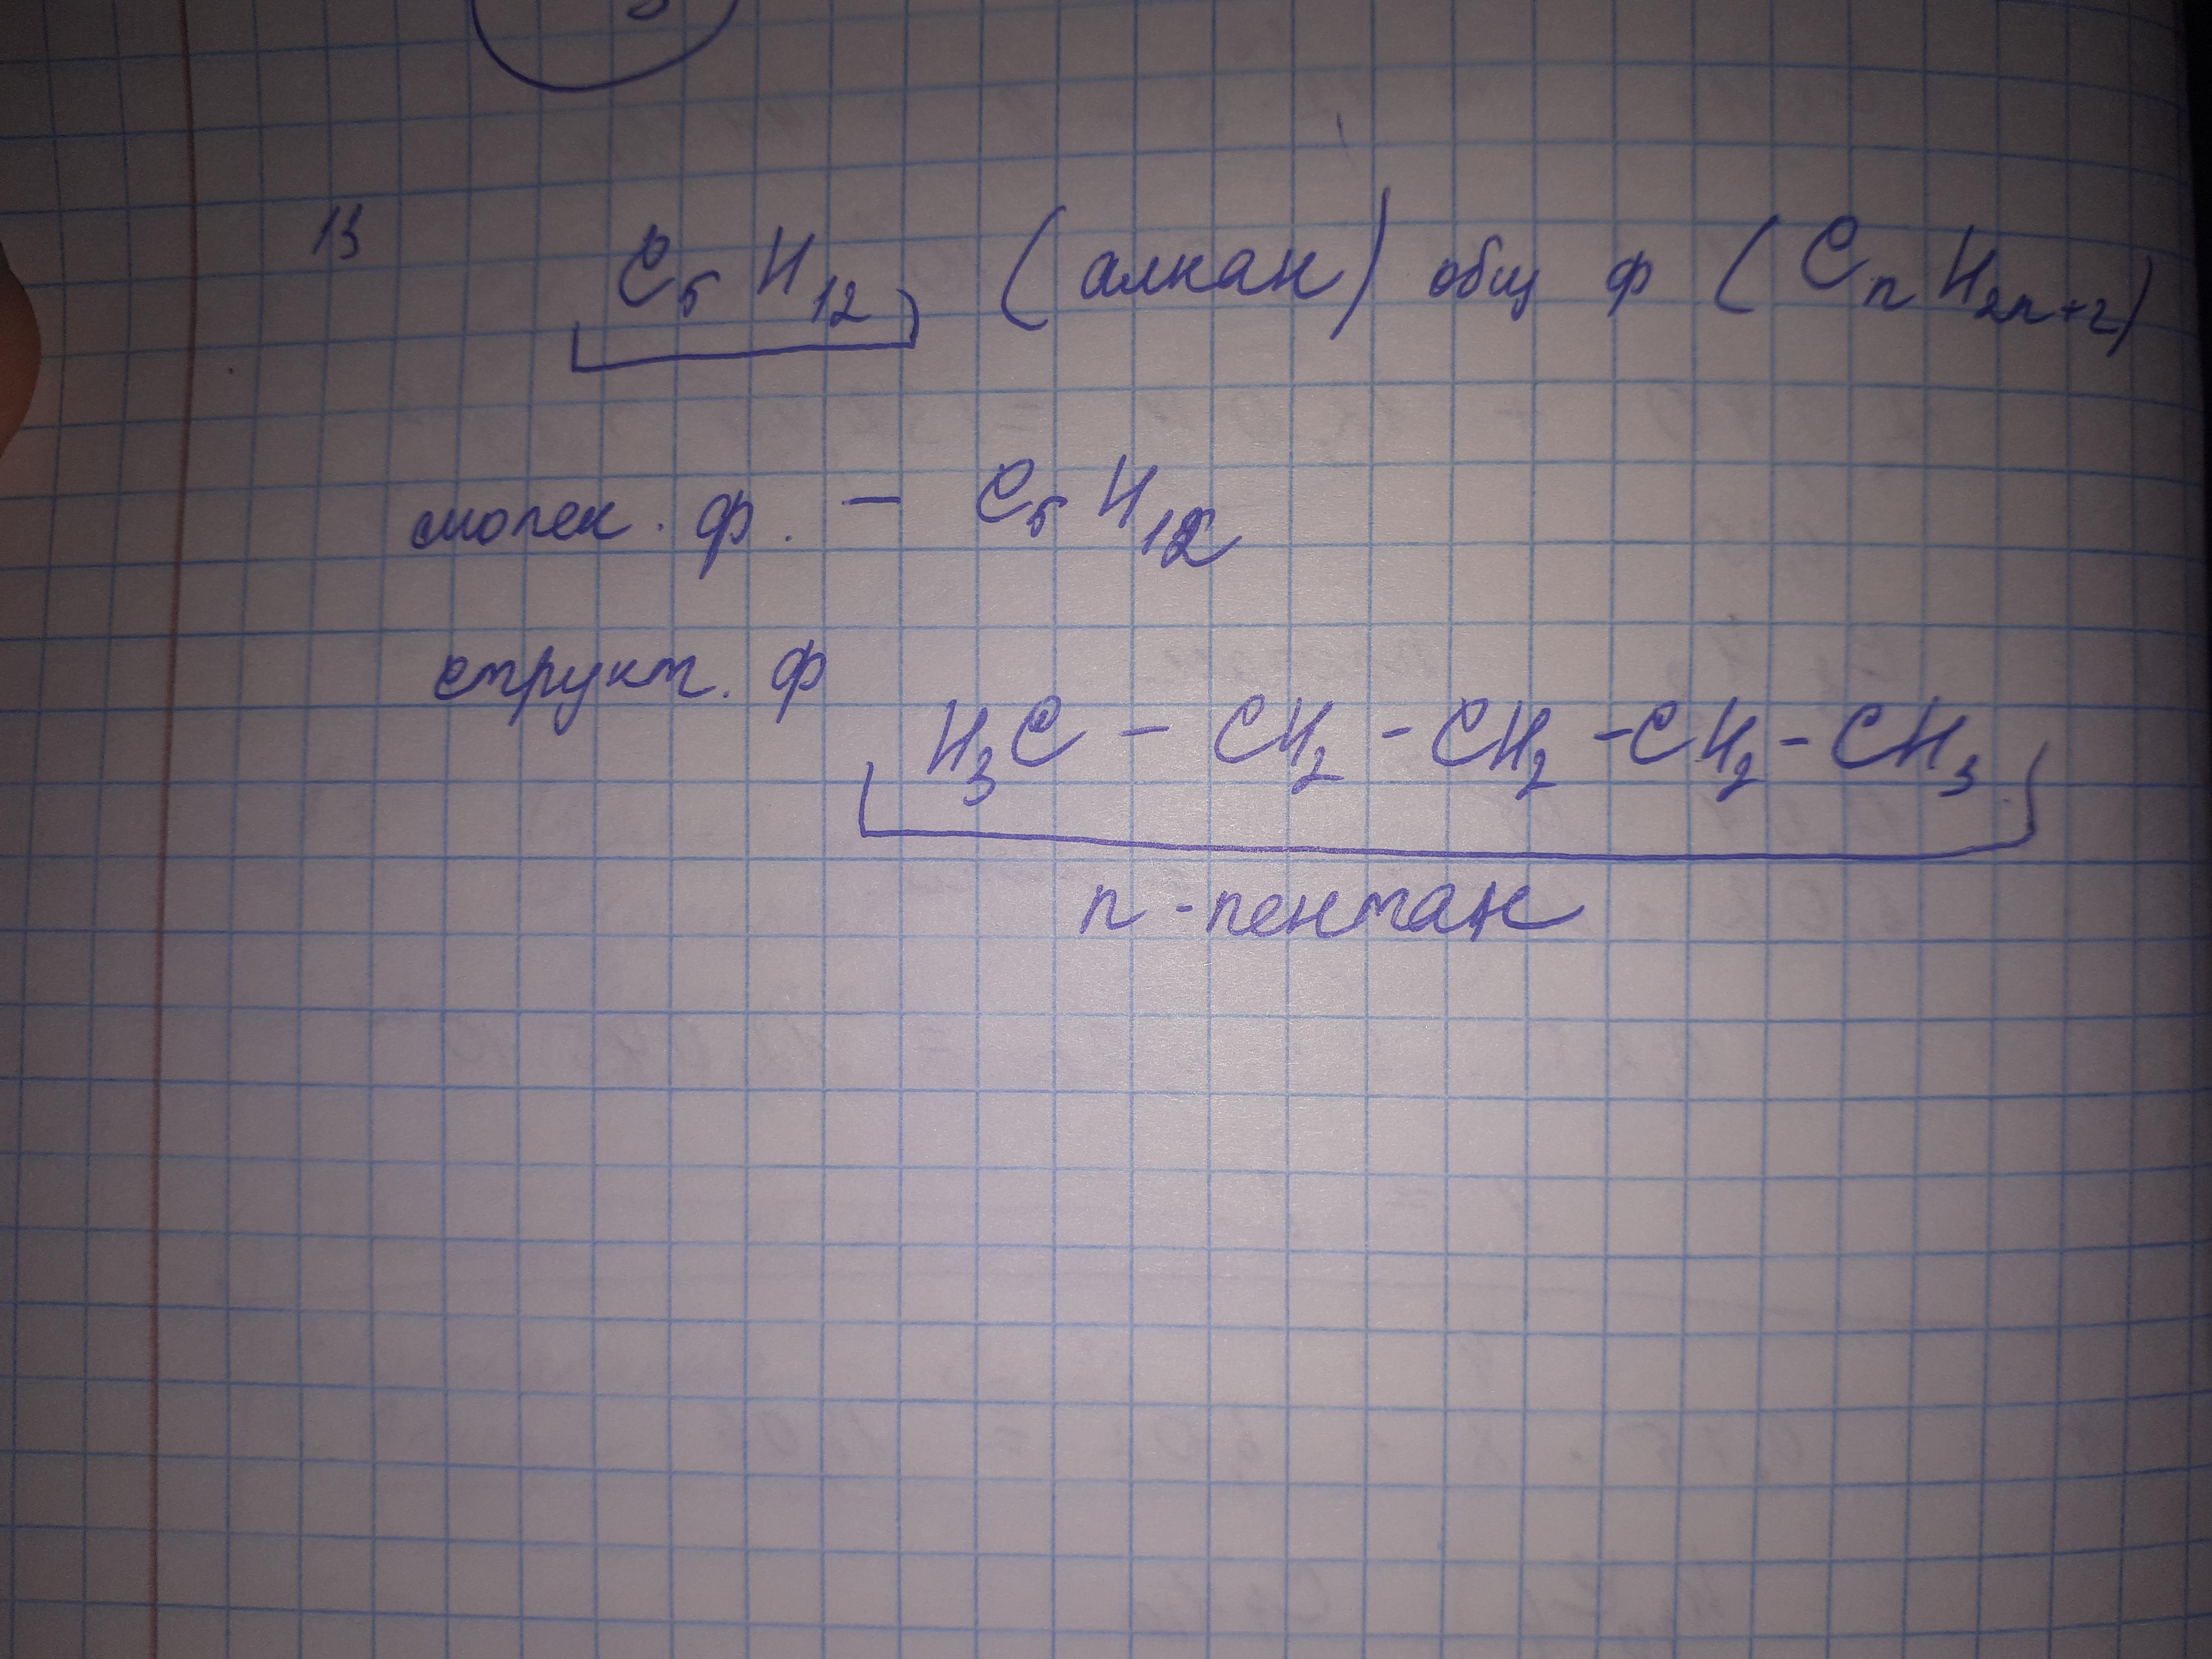 13 C₅H₁₂ (алкан) общ ф (CₙH₂ₙ₊₂)
молек. ф. – C₅H₁₂
структ. ф
H₃C – CH₂ – CH₂ – CH₂ – CH₃
n - пентан